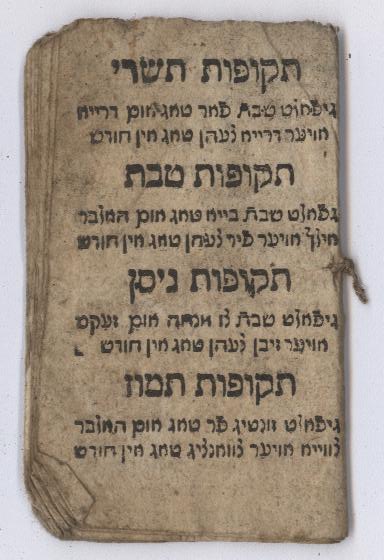 תקופות תשרי
גיפאלט שבת פאר טאג אום דרייא
אויער דרייא צעהן טאג אין חודש
תקופות טבת
גפאלט שבת בייא טאג אום האלבר
אילף אויער פיר צעהן טאג אין חודש
תקופות ניסן
גיפאלט שבת צו מנחה אום זעקס
אויער זיבן צעהן טאג אין חודש
תקופות תמוז
גיפאלט זונטיג פר טאג אום האלבר
צווייא אויער צוואנציג טאג אין חודש